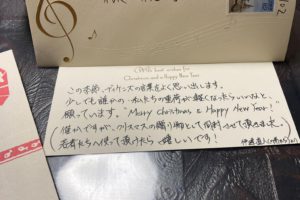 With best wishes for
Christmas and a Happy New Year
この季節、ディケンズの言葉をよく思い出します。
少しでも誰かの 私たちの重荷が軽くなったらいいなと、
願っています。"Merry Christmas & Happy New Year!"
僅かですが、クリスマスの贈り物として同封させて頂きます。
若者たちへ使って頂けたら嬉しいです!